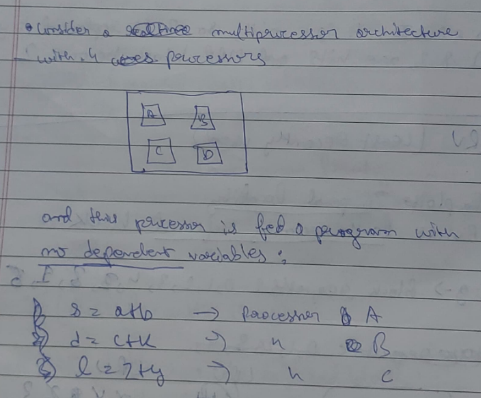 • Consider a multiprocessor architecture
with 4 processors
A B
C D
and this processor is fed a program with
no dependent variables:
1) s = a+b → Processor A
2) d = c+k → " B
3) l = 7+y → " C